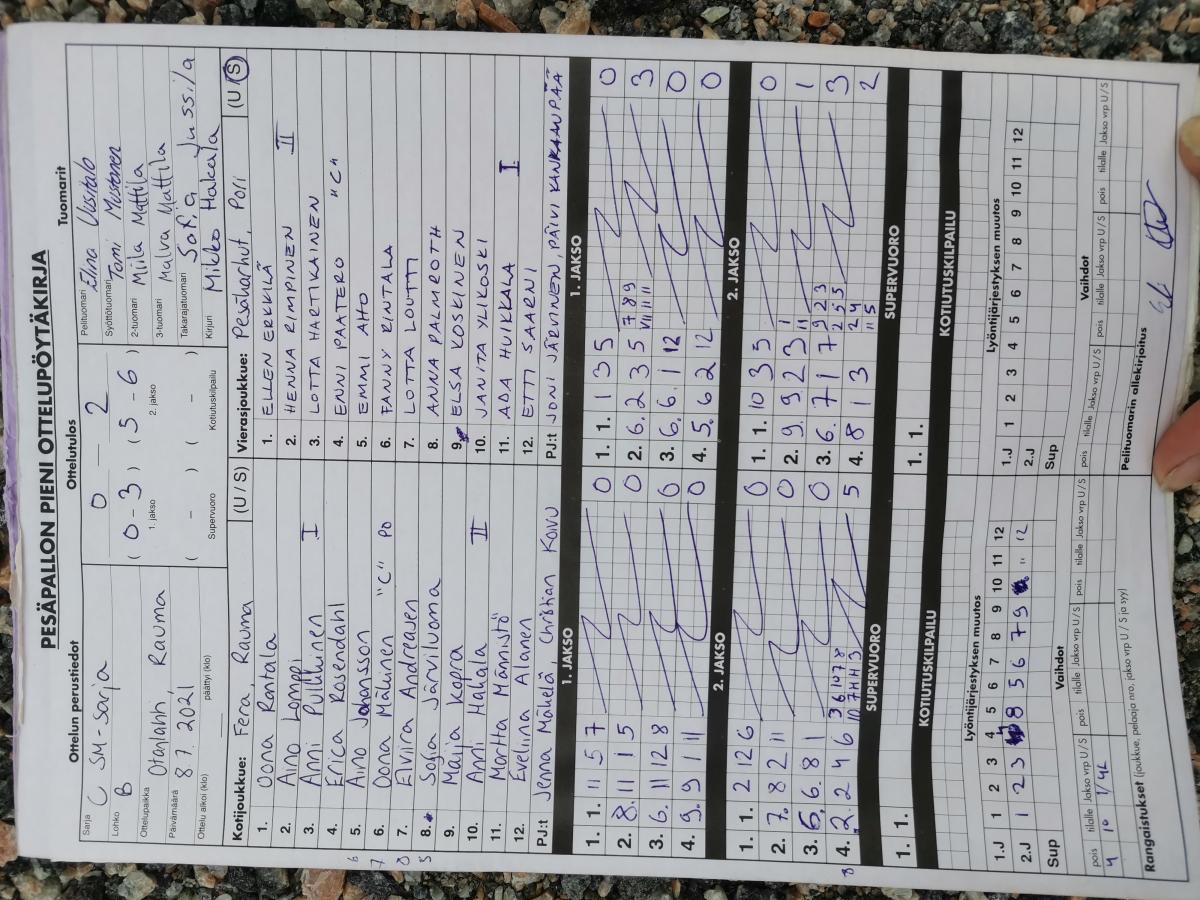 PESÄPALLON PIENI OTTELUPÖYTÄKIRJA
Ottelun perustiedot
Sarja C SM-Sarja
Lohko B
Ottelupaikka Otanlahti, Rauma
Päivämäärä 8.7.2021
Ottelu alkoi (klo) päättyi (klo)
Ottelutulos
0 2
( 0 - 3 ) ( 5 - 6 )
1. jakso 2. jakso
( - ) ( - )
Supervuoro Kotiutuskilpailu
Tuomarit
Pelituomari Elina Uusitalo
Syöttötuomari Tomi Mustonen
2-tuomari Miila Mattila
3-tuomari Malva Mattila
Takarajatuomari Sofia Jussila
Kirjuri Mikko Hakala
Kotijoukkue: Fera, Rauma (U / S)
1. Oona Rantala
2. Aino Lomppi
3. Anni Pulkkinen I
4. Erica Rosendahl
5. Aino Johansson
6. Oona Mäkinen "C" Po
7. Elviira Andreasen
8. Sofia Järviluoma
9. Maija Kopra
10. Anni Hakala II
11. Martta Männistö
12. Eveliina Alanen
PJ:t Jenna Mäkelä, Christian Koivu
Vierasjoukkue: Pesäkarhut, Pori (U / S)
1. ELLEN ERKKILÄ
2. HENNA RIMPINEN II
3. LOTTA HARTIKAINEN
4. ENNI PAATERO "C"
5. EMMI AHO
6. FANNY RINTALA
7. LOTTA LOUTTI
8. ANNA PALMROTH
9. ELSA KOSKINEN
10. JANITA YLIKOSKI
11. ADA HUIKKALA I
12. ETTI SAARNI
PJ:t JONI JÄRVINEN, PÄIVI KANKAANPÄÄ
1. JAKSO
1. 1. 11 5 7 0
2. 8. 11 1 5 0
3. 6. 11 12 8 0
4. 9. 9 1 11 0
1. JAKSO
1. 1. 1 3 5 0
2. 6. 2 3 5 7 8 9 3
3. 6. 6 1 12 0
4. 5. 6 2 12 0
2. JAKSO
1. 1. 2 12 6 0
2. 7. 8 2 11 0
3. 6. 6 8 1 0
4. 2. 2 4 6 3 6 10 7 8 5
2. JAKSO
1. 1. 10 3 5 0
2. 9. 9 2 3 1 1
3. 6. 7 1 7 9 2 3 3
4. 8 1 3 2 4 2
SUPERVUORO
1. 1.
SUPERVUORO
1. 1.
KOTIUTUSKILPAILU
KOTIUTUSKILPAILU
Lyöntijärjestyksen muutos
1.J 1 2 3 4 5 6 7 8 9 10 11 12
2.J 1 2 3 8 5 6 7 9 11 12
Sup
Lyöntijärjestyksen muutos
1.J 1 2 3 4 5 6 7 8 9 10 11 12
2.J
Sup
Vaihdot
pois tilalle Jakso vrp U / S pois tilalle Jakso vrp U / S pois tilalle Jakso vrp U / S
4 10 1/4L
Vaihdot
pois tilalle Jakso vrp U / S pois tilalle Jakso vrp U / S pois tilalle Jakso vrp U / S
Rangaistukset (joukkue, pelaaja nro, jakso vrp U / S ja syy)
Pelituomarin allekirjoitus